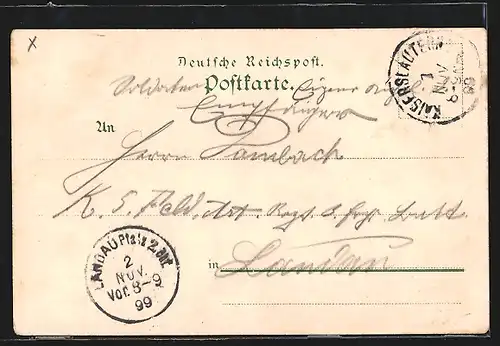 x
Deutsche Reichspost.
Postkarte.
Soldaten Eigene Angel.
Empfängers
An
Herrn Lambach
K. 5. Feld. Art. Regt. 3. Batt
in Landau
KAISERSLAUTERN
1
NOV
8-9
99
LANDAU Pfalz
2
NOV.
Vor. 8-9
99